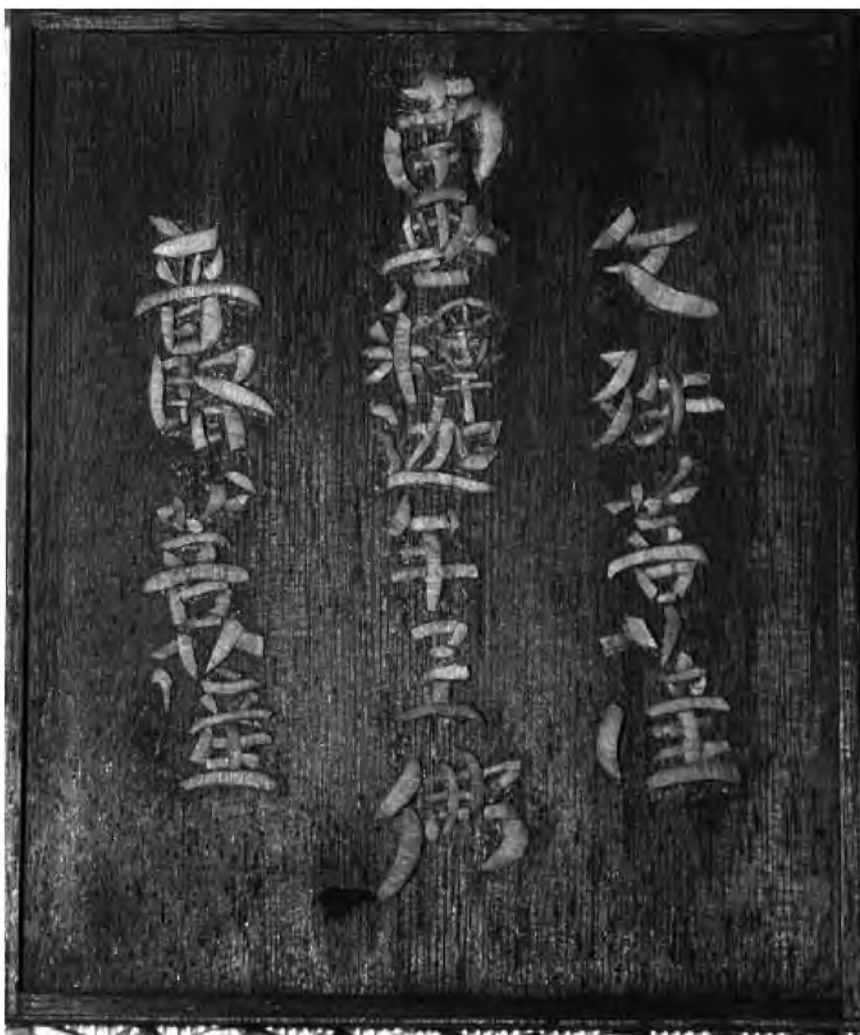 文殊菩薩
南無釋迦牟尼佛
普賢菩薩